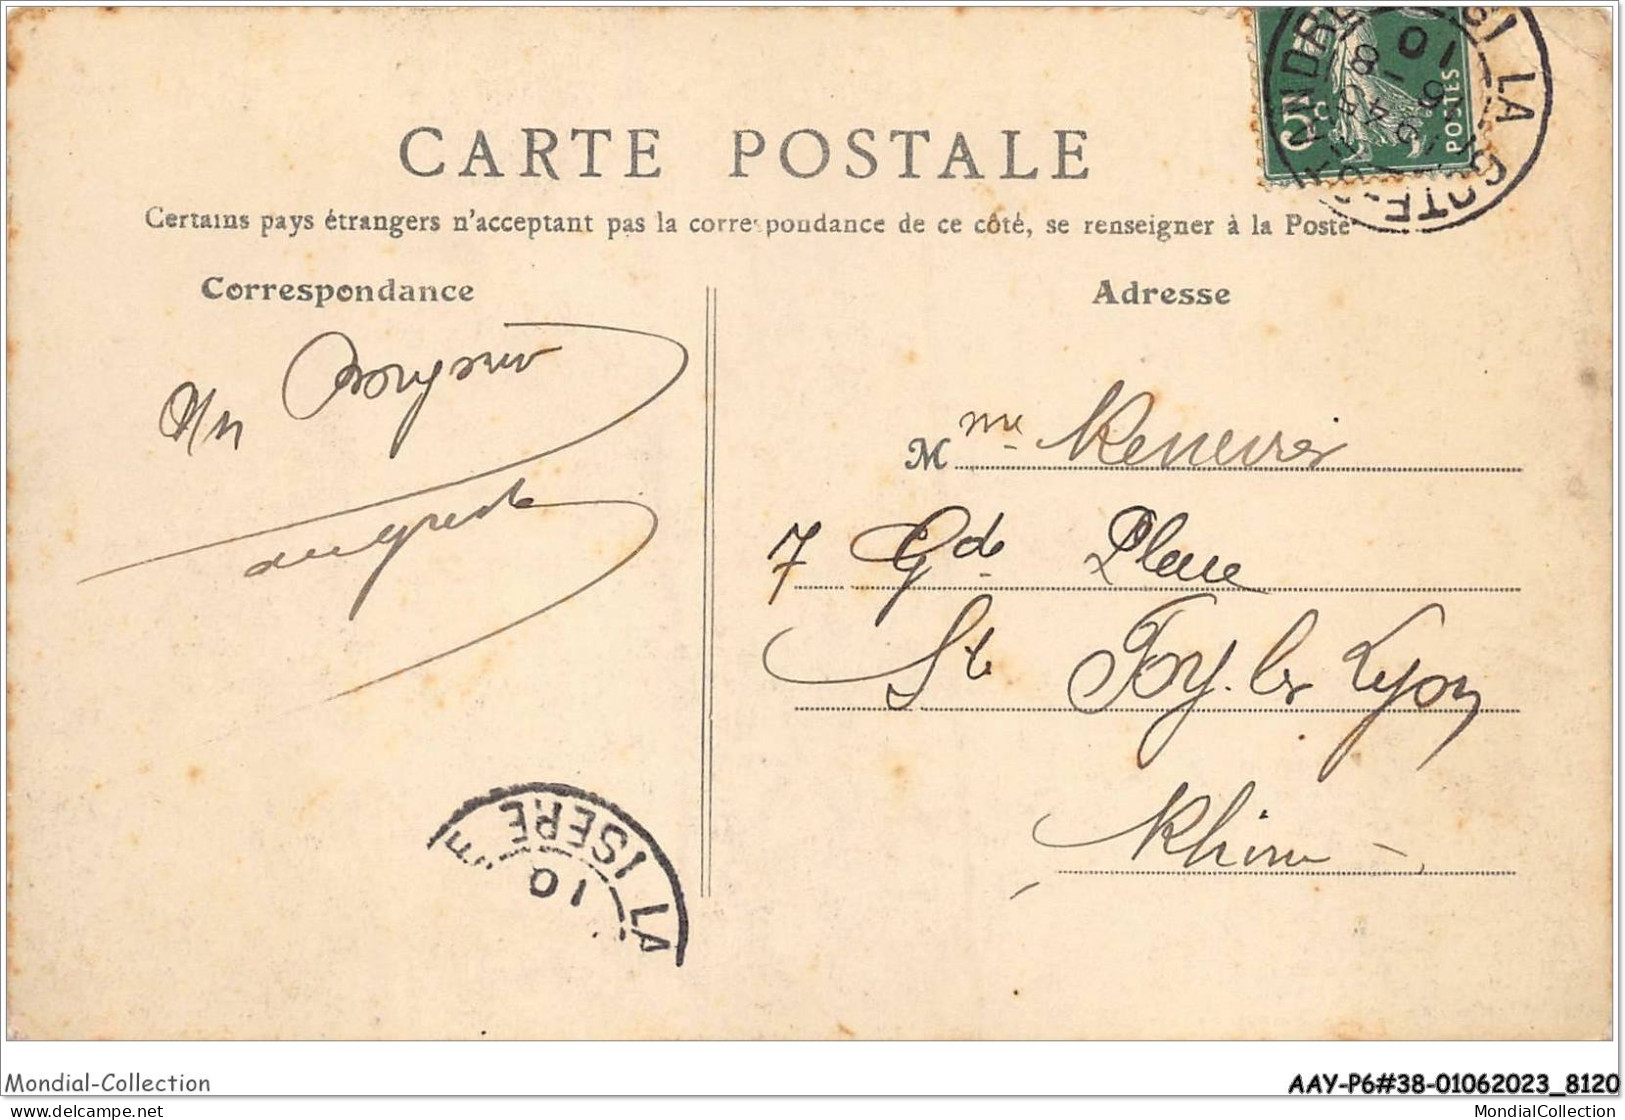 CARTE POSTALE
Certains pays étrangers n'acceptant pas la correspondance de ce côté, se renseigner à la Poste
Correspondance
Un
Adresse
M me
7 Gde Place
Ste Foy-les Lyon
Rhône
POSTES
LA COTE-ST-ANDRE
10
LA
ISERE
10
E
Mondial-Collection
AAY-P6#38-01062023_8120
www.delcampe.net
MondialCollection